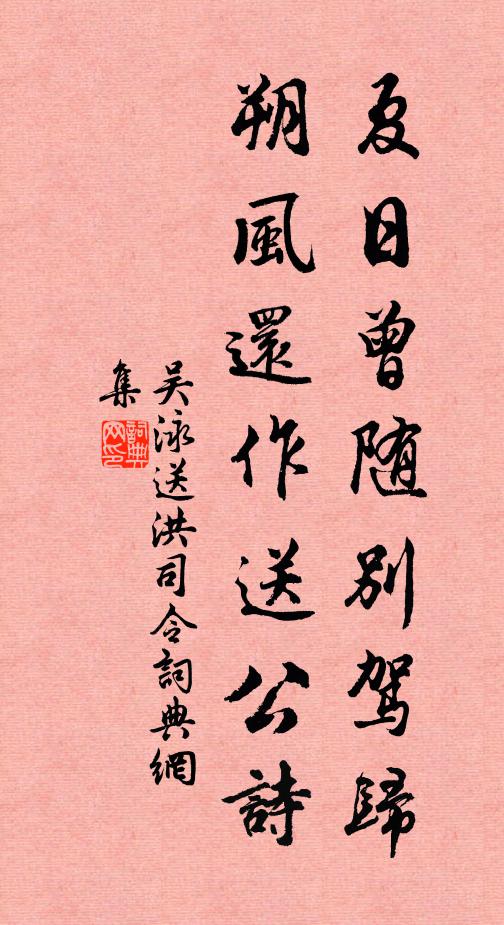 夏日曾随別駕歸
朔風還作送公詩
吴泳送洪司令詞典網
集
詞典
网印